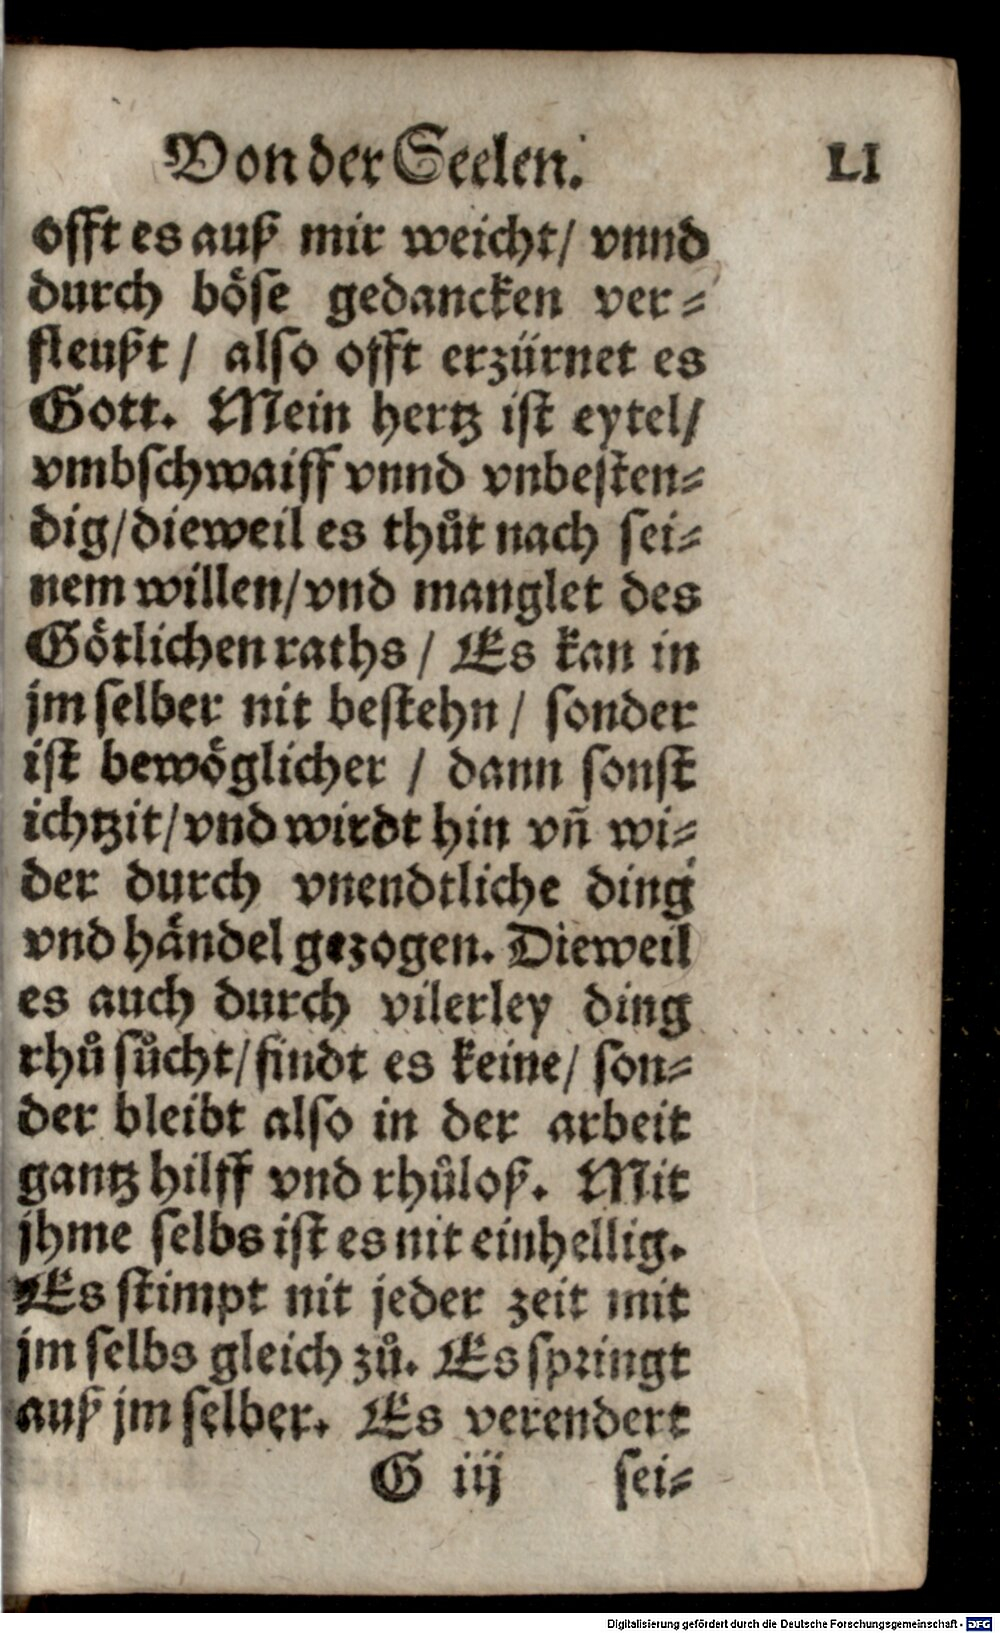 Von der Seelen. LI
offt es auß mir weicht/ vnnd
durch böse gedancken ver-
fleußt/ also offt erzürnet es
Gott. Mein hertz ist eytel/
vmbschwaiff vnnd vnbesten-
dig/dieweil es thůt nach sei-
nem willen/vnd manglet des
Götlichen raths/ Es kan in
jm selber nit bestehn/ sonder
ist bewöglicher/ dann sonst
ichtzit/vnd wirdt hin vñ wi-
der durch vnendtliche ding
vnd händel gezogen. Dieweil
es auch durch vilerley ding
rhů sůcht/findt es keine/ son-
der bleibt also in der arbeit
gantz hilff vnd rhůloß. Mit
jhme selbs ist es nit einhellig.
Es stimpt nit jeder zeit mit
jm selbs gleich zů. Es springt
auß jm selber. Es verendert
G iij sei-
Digitalisierung gefördert durch die Deutsche Forschungsgemeinschaft - DFG